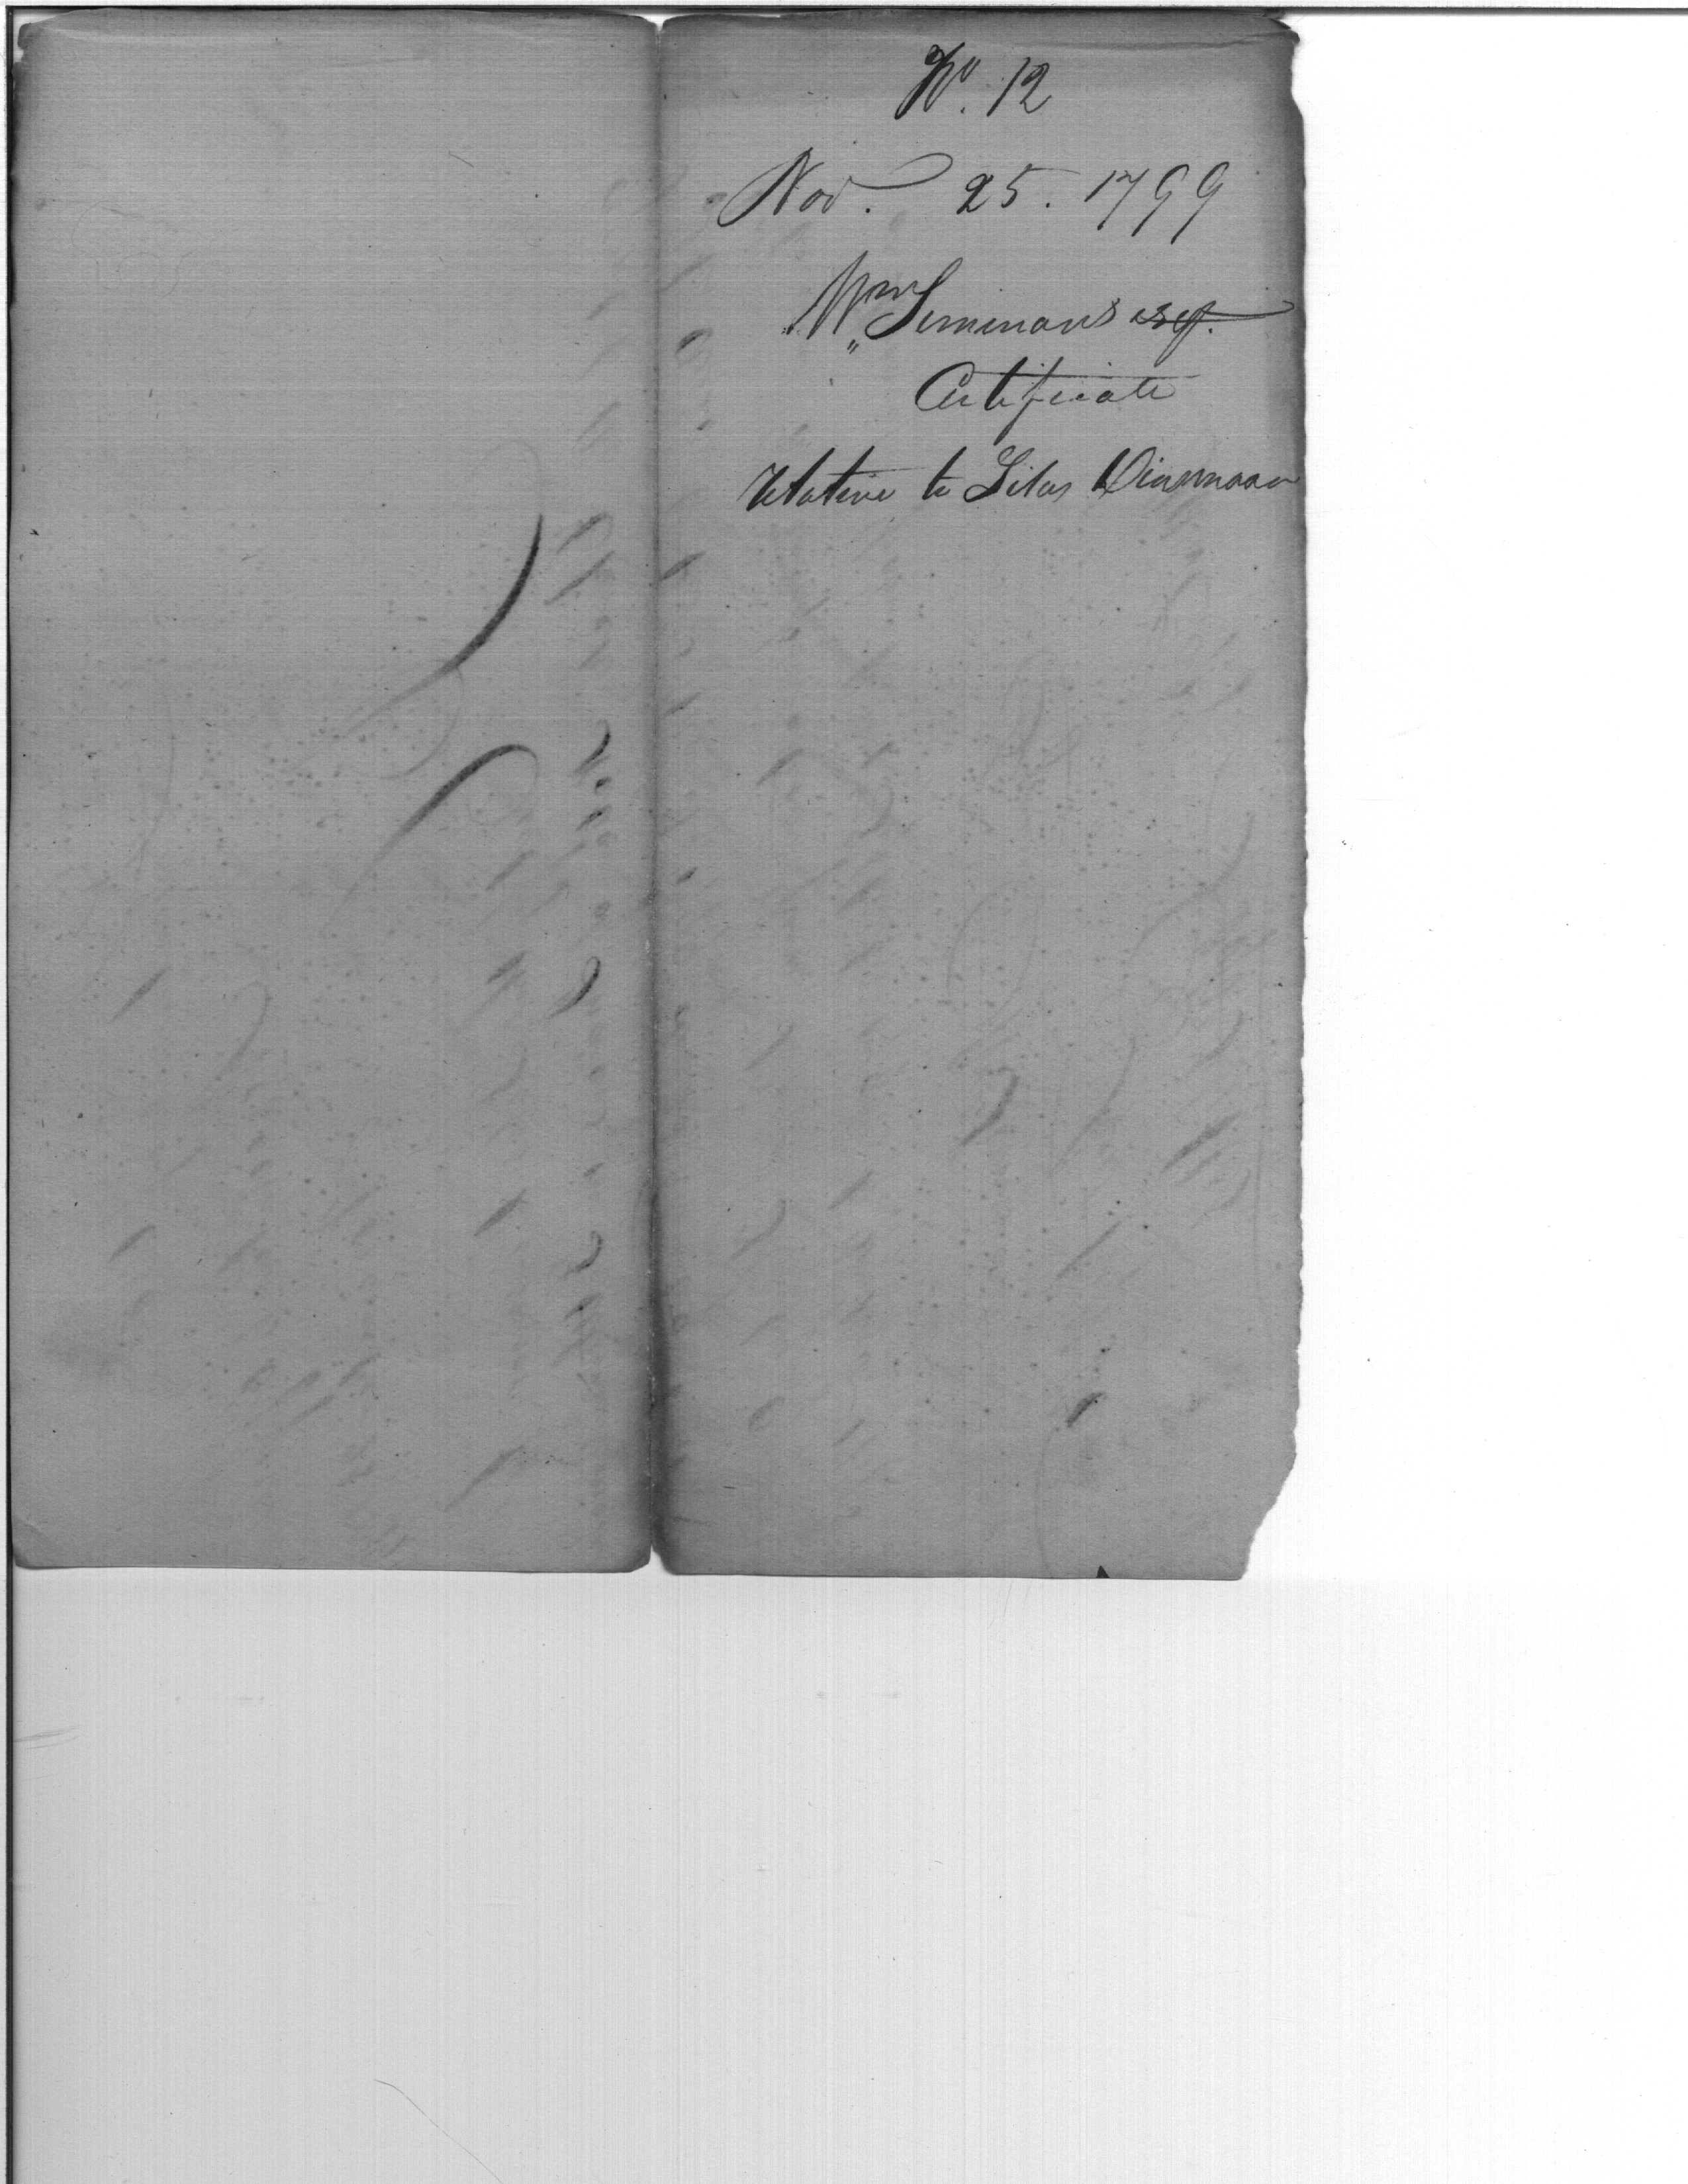 No. 12
Nov. 25. 1799
Wm Simmons esq.
Certificate
relative to Silas Dinsmoor